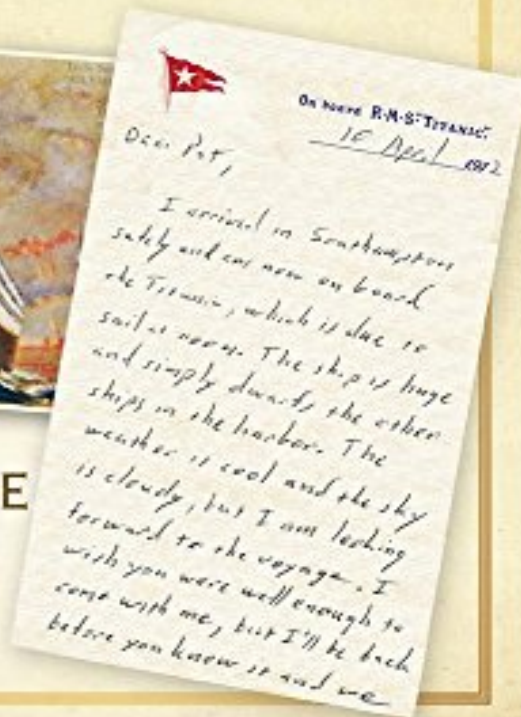 On board R·M·S "TITANIC".
10 April 1912
Dear Pat,
I arrived in Southampton
safely and am now on board
the Titanic, which is due to
sail at noon. The ship is huge
and simply dwarfs the other
ships in the harbor. The
weather is cool and the sky
is cloudy, but I am looking
forward to the voyage. I
wish you were well enough to
come with me, but I'll be back
before you know it and we
E